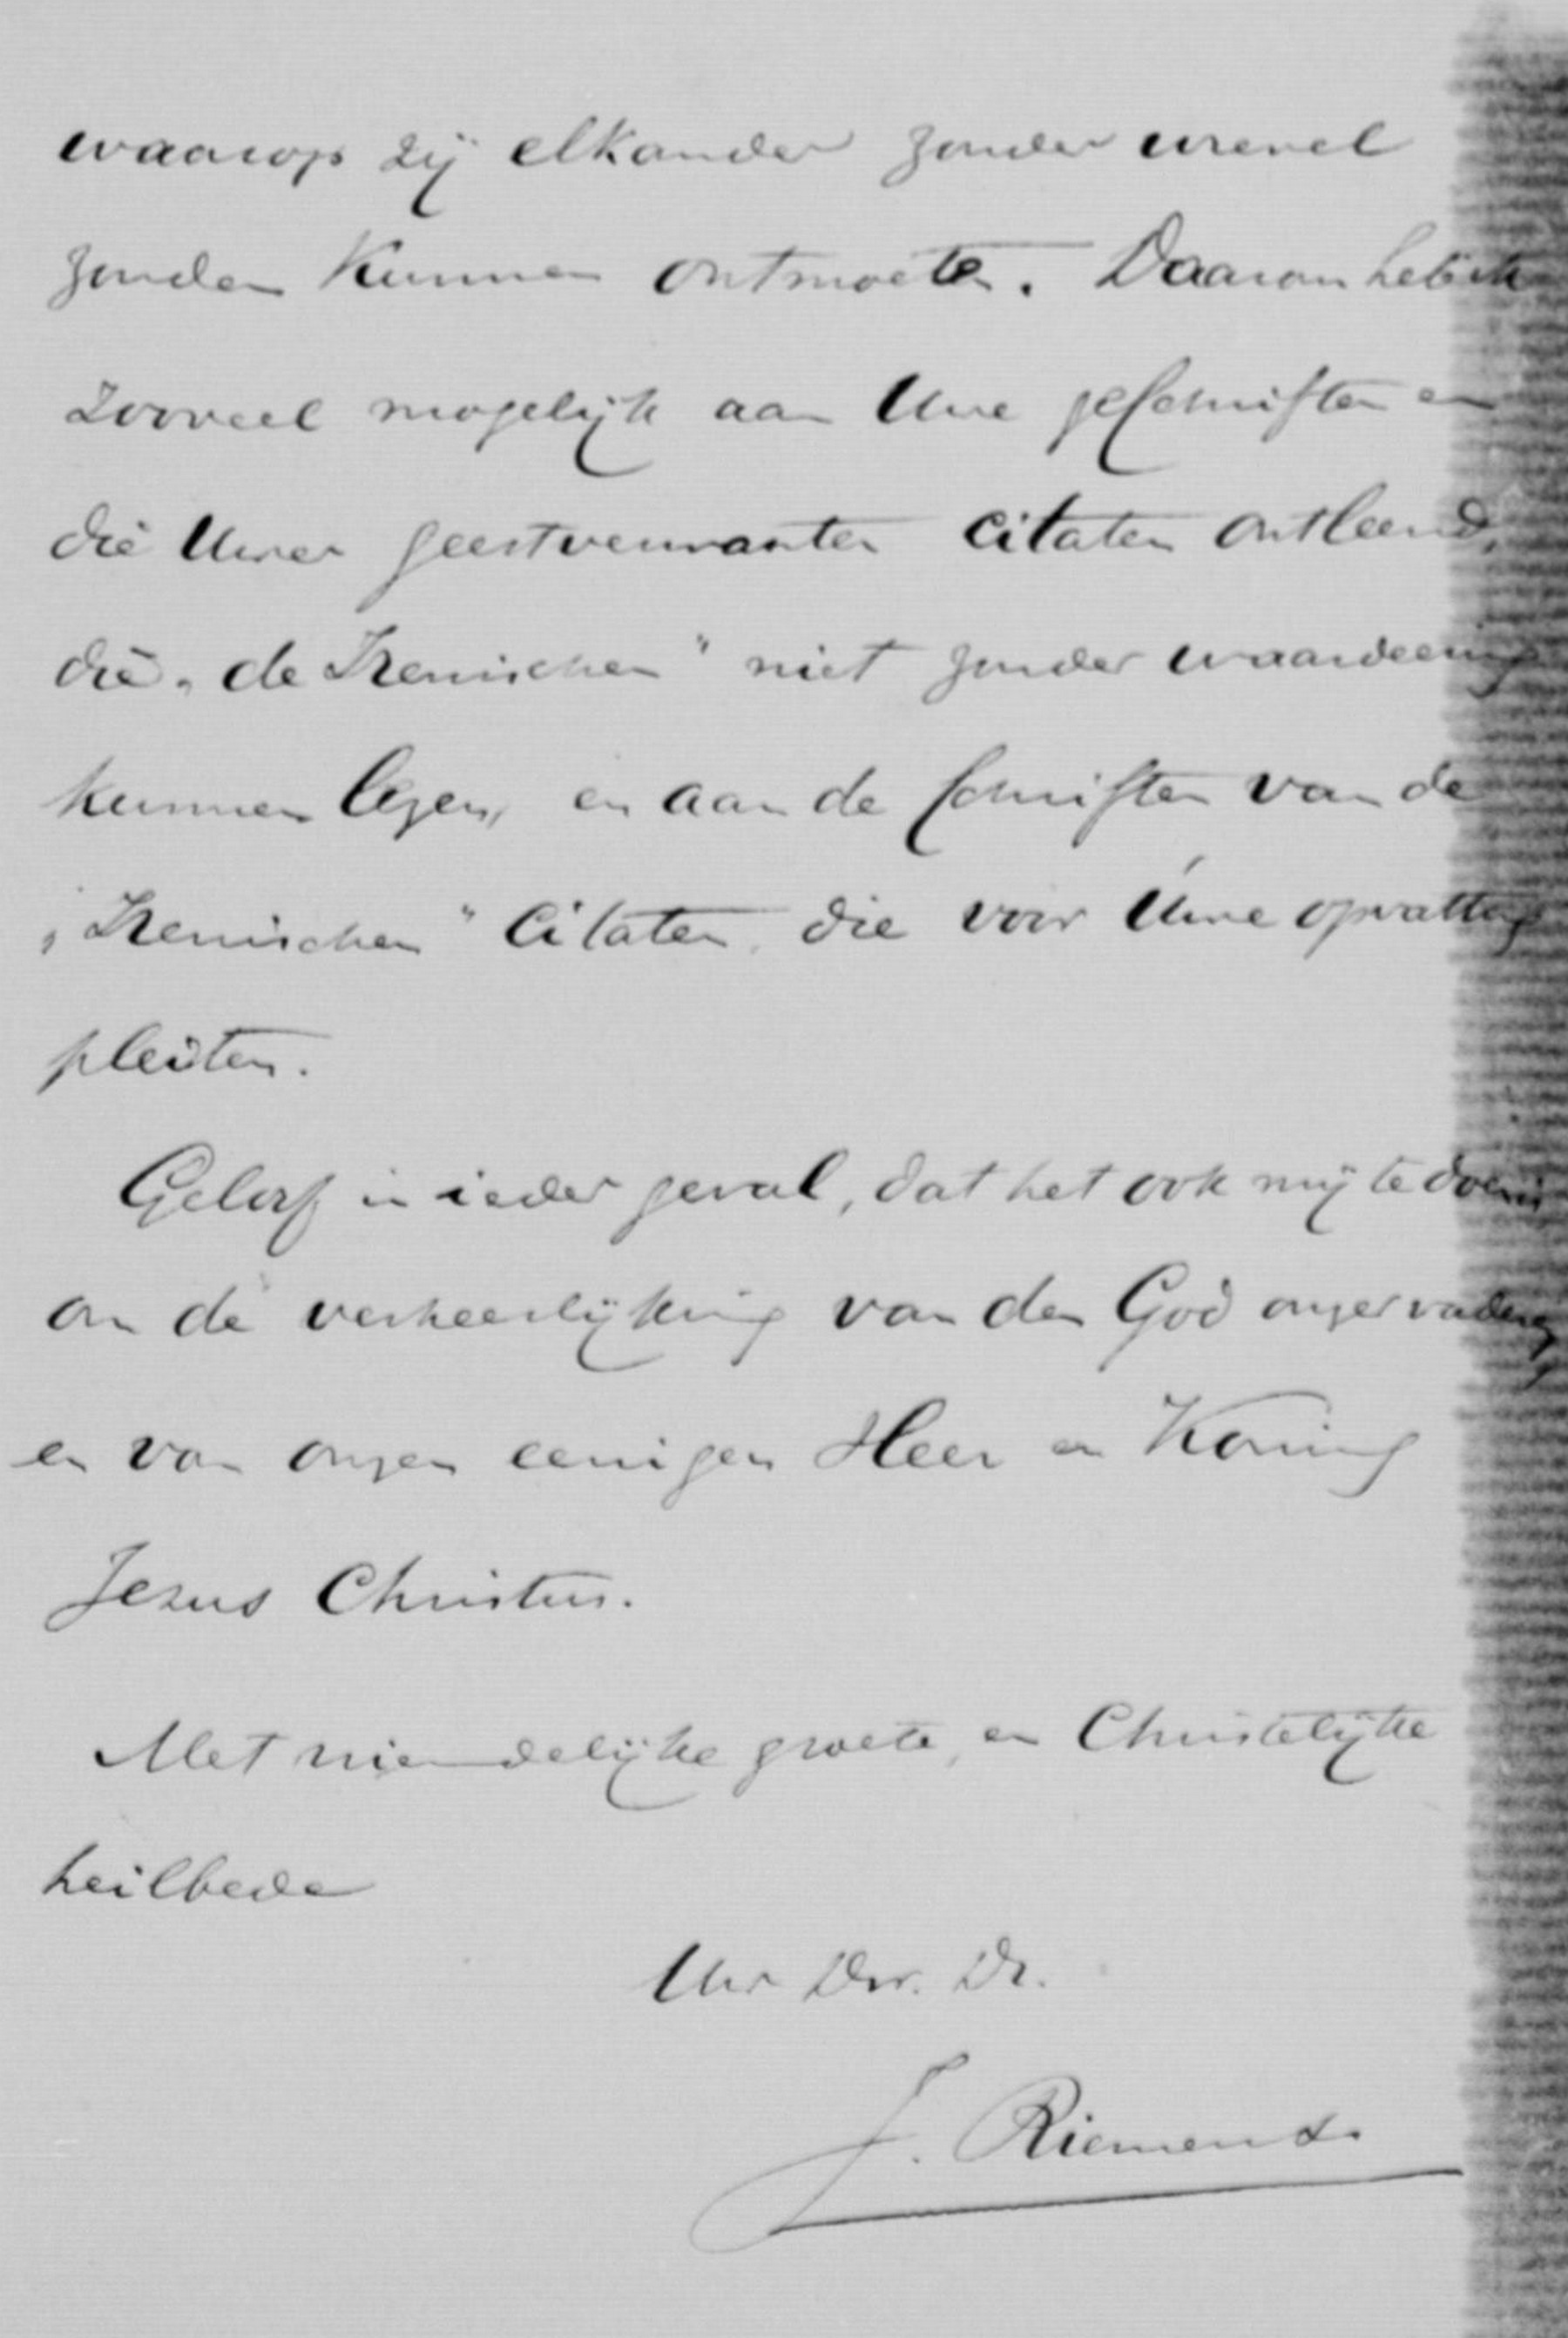 waarop zij elkander zonder wrevel
zouden kunnen ontmoeten. Daarom heb ik
zooveel mogelijk aan Uwe geschriften en
die Uwer geestverwanten citaten ontleend,
die „de Irenischen" niet zonder waardeering
kunnen lezen, en aan de schriften van de
„Irenischen" citaten, die voor Uwe opvatting
pleiten.
Geloof in ieder geval, dat het ook mij te doen is
om de verheerlijking van den God onzer vaderen,
en van onzen eenigen Heer en Koning
Jezus Christus.
Met vriendelijke groete, en Christelijke
heilbede
Uw Dw. Dr.
J. Riemens